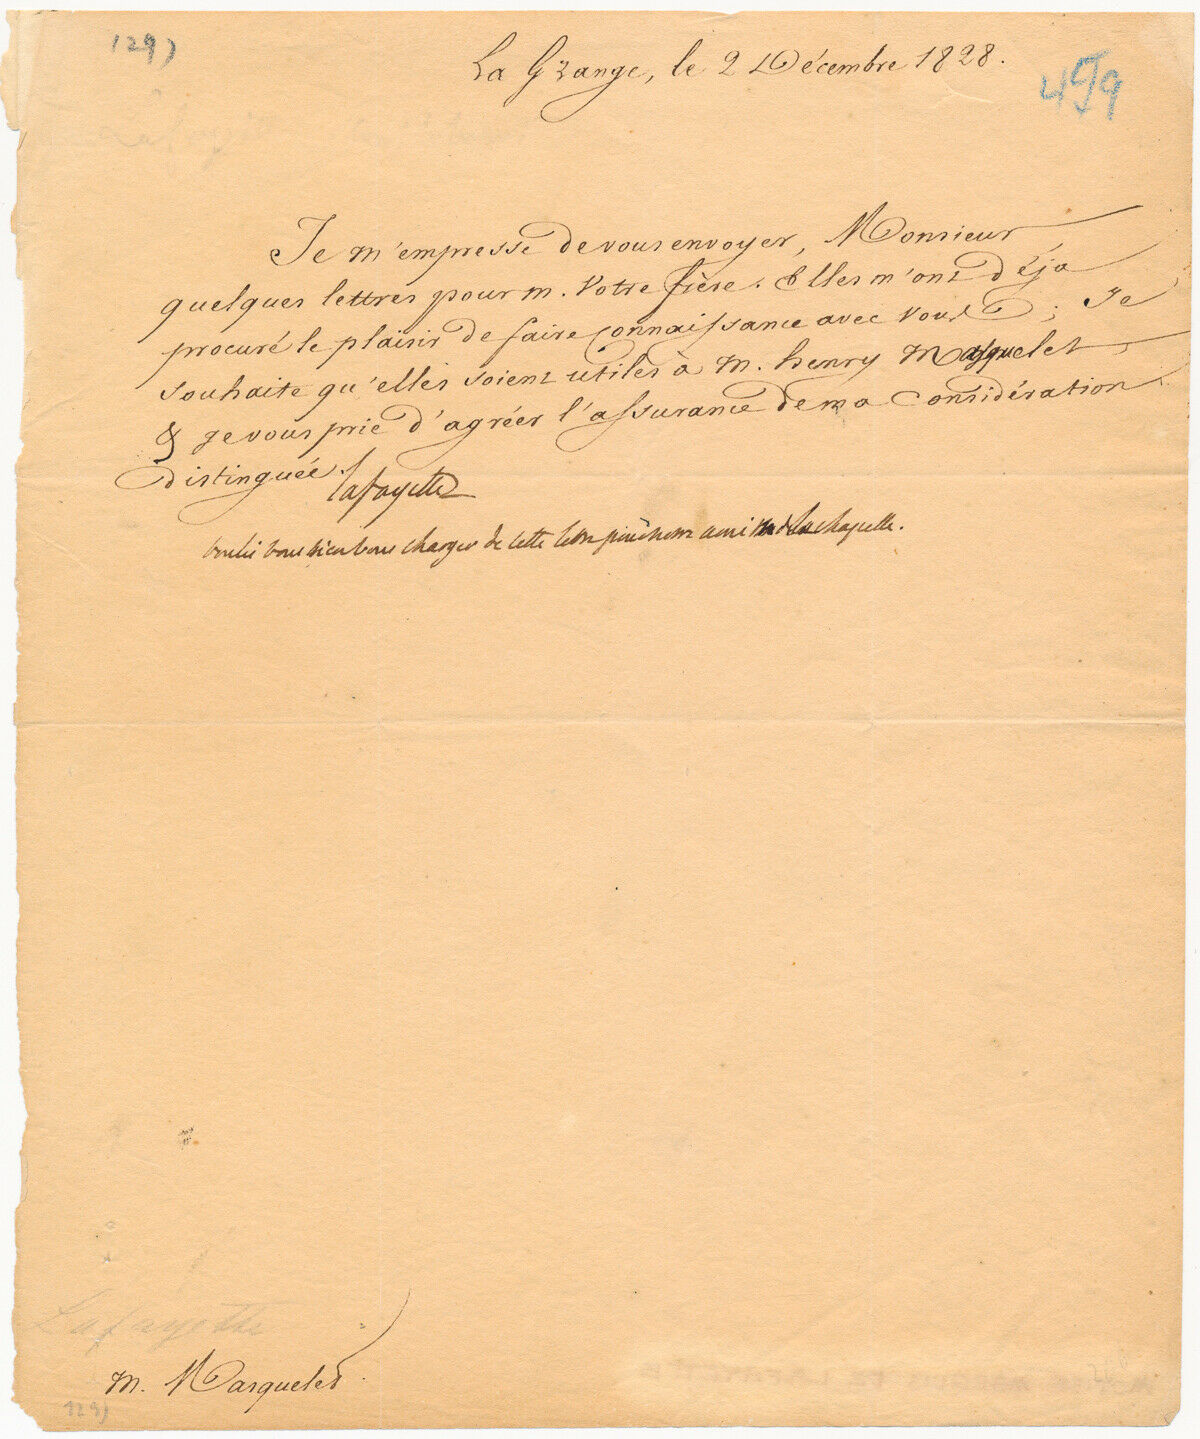 129)
La Grange, le 2 Décembre 1828.
459
Je m'empresse de vous envoyer, Monsieur
quelques lettres pour m. votre frère. Elles m'ont déjà
procuré le plaisir de faire connaissance avec vous; Je
souhaite qu'elles soient utiles à m. henry Masquelet
& je vous prie d'agréer l'assurance de ma Considération
distinguée.
Lafayette
voulés vous bien vous charger de cette lettre pour notre ami lachapelle.
Lafayette
m. Masquelet
129)